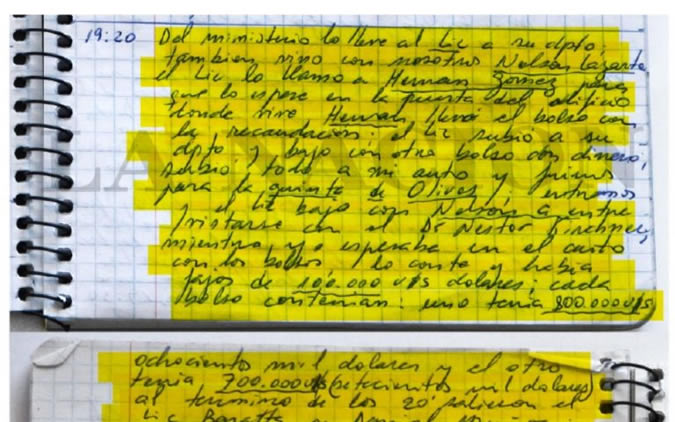 19:20 Del ministerio lo lleve al Lic a su dpto,
tambien vino con nosotros Nelson Lazarte
el Lic lo llamo a Hernan Gomez para
que lo espere en la puerta del edificio
donde vive Hernan, llevó el bolso con
la recaudacion. el Lic subio a su
dpto. y bajo con otro bolso con dinero,
subio todo a mi auto y fuimos
para la quinta de Olivos entramos
y el Lic bajo con Nelson a entre
/vistarse con el Dr Nestor Kirchner,
mientras yo esperaba en el auto
con los bolsos lo conte y habia
fajos de 100.000 u$s dolares, cada
bolso contenian: uno tenia 800.000 u$s
LA NACION
ochocientos mil dolares y el otro
tenia 700.000 u$s (setecientos mil dolares)
al termino de los 20' salieron el
Lic Baratta